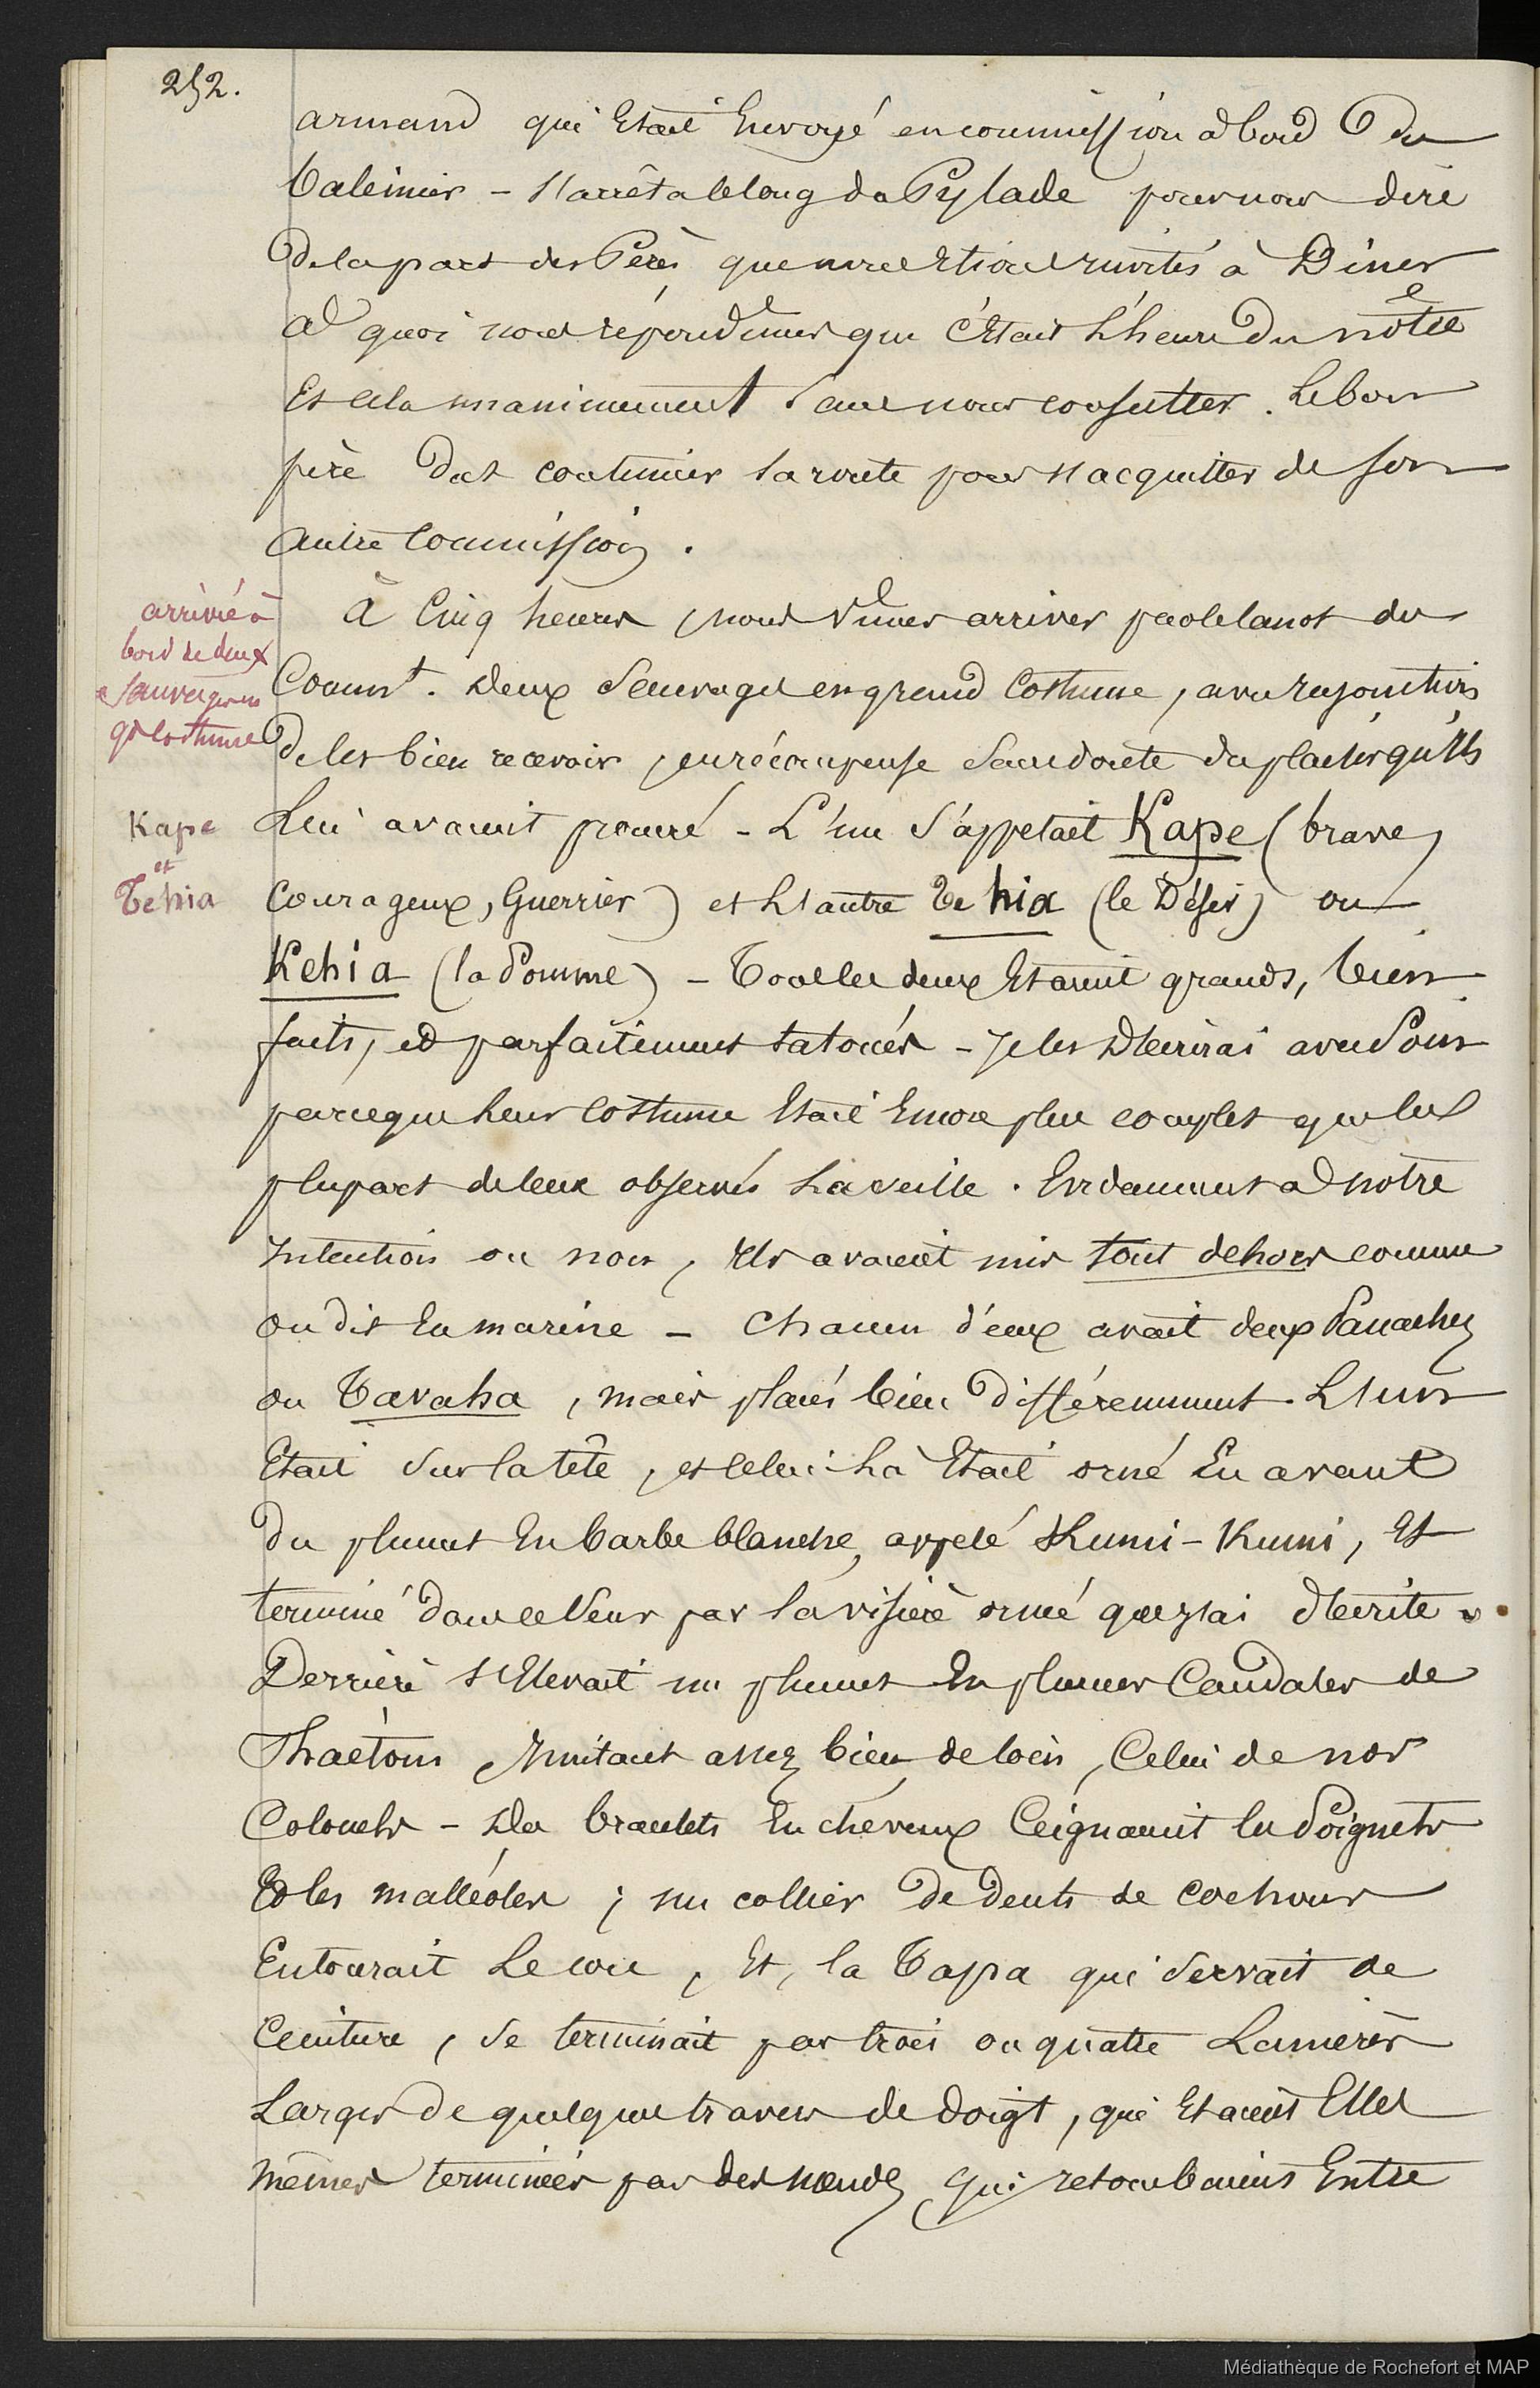 252.
armand qui Etait Envoyé en commission à bord du
baleinier - s'arrêta le long du Pylade pour nous dire
de la part des Pères que nous étions invités à Diner
à quoi nous répondimes que c'Etait l'heure du nôtre
Et cela unanimement sans nous consulter. Le bon
père dut continuer sa route pour s'acquitter de son
autre Commission.
arrivée à
bord de deux
Sauvages en
gd Costume
à Cinq heures, nous vimes arriver par le canot du
Commt. deux Sauvages en grand Costume, avec injonction
de les bien recevoir, en récompense sans doute du plaisir qu'Ils
Kape
et
Tehia
Lui avaient procuré - L'un s'appelait Kape (brave,
Courageux, Guerrier) et L'autre Te hia (le Désir) ou
Kehia (la Pomme) - Tous les deux Etaient grands, bien
faits, et parfaitement tatoués - Je les Décrirai avec Soin
parceque leur Costume Etait Encore plus complet que les
plupart de ceux observés La veille. Evidemment à notre
Intention ou non, Ils avaient mis tout dehors comme
on dit En marine - Chacun d'eux avait deux Panaches
ou Tavaha, mais placés bien différemment. L'un
Etait sur la tête, et celui-là Etait orné En avant
du plumet En barbe blanche, appelé Kumi-Kumi, Et
terminé dans ce Sens par la visière ornée que j'ai décrite.
Derrière s'Elevait un plumet En plumes Caudales de
Phaétons, Imitant assez bien, de loin, Celui de nos
Colonels - Des bracelets En cheveux Ceignaient les Poignets
Et les malléoles ; un collier de dents de cochons
Entourait Le cou, Et, la Tapa qui servait de
Ceinture, se terminait par trois ou quatre Lanières
Larges de quelques travers de doigt, qui Etaient Elles
mêmes terminées par des nœuds qui retombaient Entre
Médiathèque de Rochefort et MAP